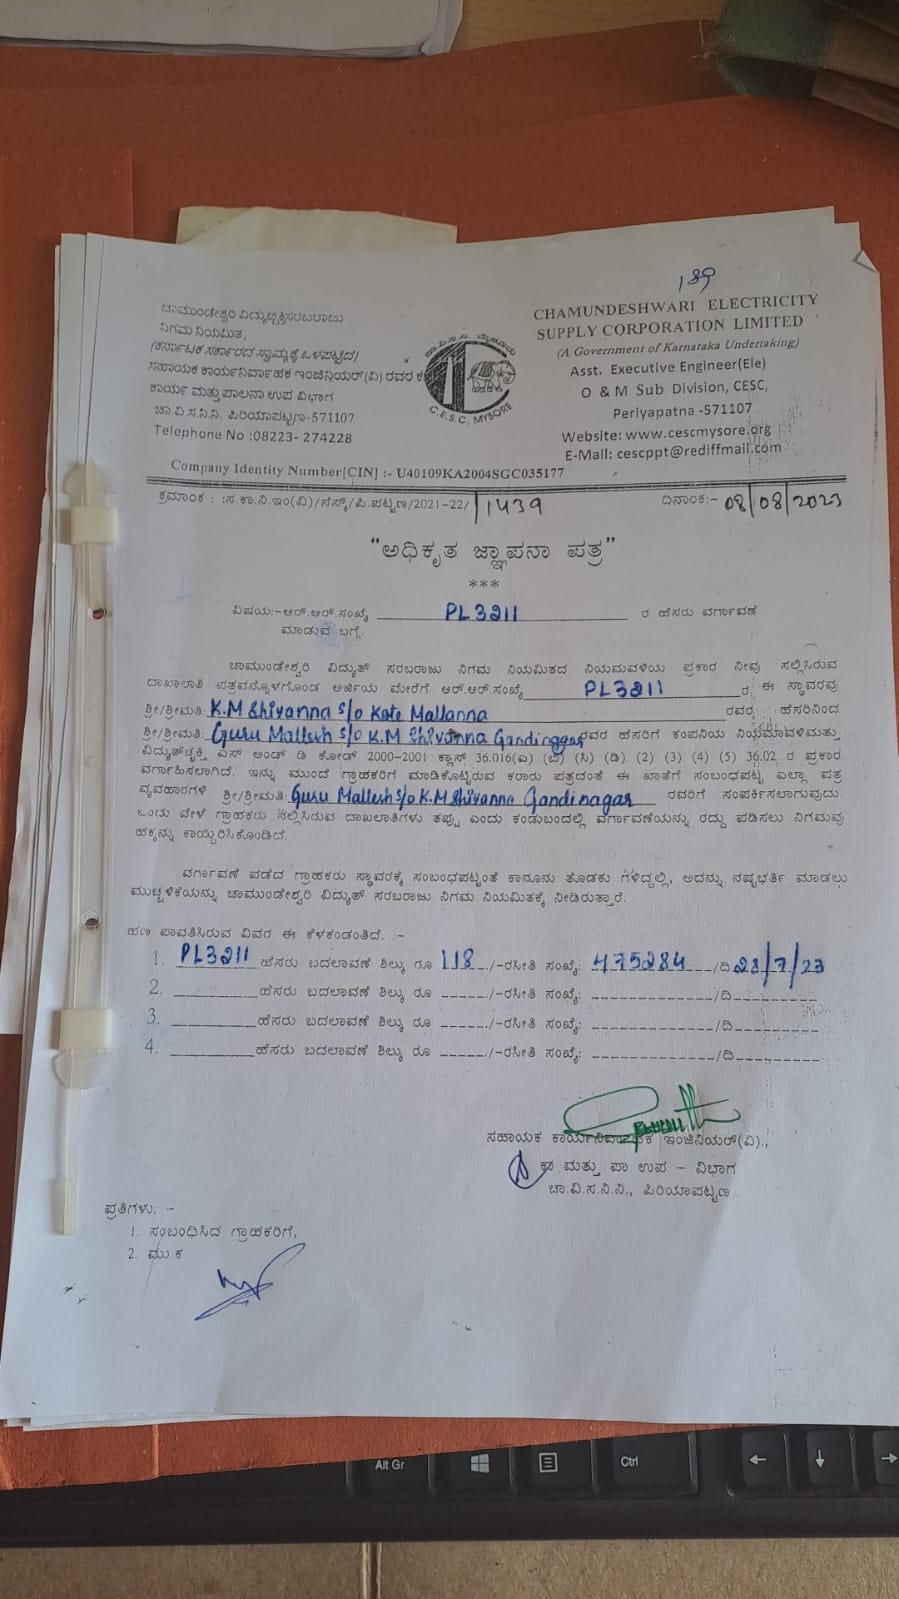 189
ಚಾಮುಂಡೇಶ್ವರಿ ವಿದ್ಯುಚ್ಛಕ್ತಿಸರಬರಾಜು
ನಿಗಮ ನಿಯಮಿತ,
(ಕರ್ನಾಟಕ ಸರ್ಕಾರದ ಸ್ವಾಮ್ಯಕ್ಕೆ ಒಳಪಟ್ಟಿದೆ)
ಸಹಾಯಕ ಕಾರ್ಯನಿರ್ವಾಹಕ ಇಂಜಿನಿಯರ್(ವಿ) ರವರ
ಕಾರ್ಯ ಮತ್ತು ಪಾಲನಾ ಉಪ ವಿಭಾಗ
ಚಾ.ವಿ.ಸ.ನಿ.ನಿ. ಪಿರಿಯಾಪಟ್ಟಣ-571107
Telephone No :08223- 274228
C.E.S.C, MYSORE
CHAMUNDESHWARI ELECTRICITY
SUPPLY CORPORATION LIMITED
(A Government of Karnataka Undertaking)
Asst. Executive Engineer(Ele)
O & M Sub Division, CESC,
Periyapatna -571107
Website: www.cescmysore.org
E-Mall: cescppt@rediffmail.com
Company Identity Number[CIN] :- U40109KA2004SGC035177
ಕ್ರಮಾಂಕ : :ಸ.ಕಾ.ನಿ.ಇಂ(ವಿ)/ಸೆಸ್ಕ್/ಪಿ.ಪಟ್ಟಣ/2021-22/ 1439 ದಿನಾಂಕ:- 08/08/2023
"ಅಧಿಕೃತ ಜ್ಞಾಪನಾ ಪತ್ರ"
***
ವಿಷಯ:-ಆರ್.ಆರ್.ಸಂಖ್ಯೆ PL3211 ರ ಹೆಸರು ವರ್ಗಾವಣೆ
ಮಾಡುವ ಬಗ್ಗೆ.
ಚಾಮುಂಡೇಶ್ವರಿ ವಿದ್ಯುತ್ ಸರಬರಾಜು ನಿಗಮ ನಿಯಮಿತದ ನಿಯಮವಳಿಯ ಪ್ರಕಾರ ನೀವು ಸಲ್ಲಿಸಿರುವ
ದಾಖಾಲಾತಿ ಪತ್ರವನ್ನೊಳಗೊಂಡ ಅರ್ಜಿಯ ಮೇರೆಗೆ ಆರ್.ಆರ್.ಸಂಖ್ಯೆ PL3211 ರ ಈ ಸ್ಥಾವರವು
ಶ್ರೀ/ಶ್ರೀಮತಿ: K.M Shivanna S/o Kote Mallanna ರವರ ಹೆಸರಿನಿಂದ
ಶ್ರೀ/ಶ್ರೀಮತಿ: Guru Mallesh S/o K.M Shivanna Gandinagar ರವರ ಹೆಸರಿಗೆ ಕಂಪನಿಯ ನಿಯಮಾವಳಿಮತ್ತು
ವಿದ್ಯುತ್‌ಚ್ಛಕ್ತಿ ಎಸ್ ಅಂಡ್ ಡಿ ಕೋಡ್ 2000-2001 ಕ್ಲಾಸ್ 36.016(ಎ) (ಬಿ) (ಸಿ) (ಡಿ) (2) (3) (4) (5) 36.02 ರ ಪ್ರಕಾರ
ವರ್ಗಾಹಿಸಲಾಗಿದೆ. ಇನ್ನು ಮುಂದೆ ಗ್ರಾಹಕರಿಗೆ ಮಾಡಿಕೊಟ್ಟಿರುವ ಕರಾರು ಪತ್ರದಂತೆ ಈ ಖಾತೆಗೆ ಸಂಬಂಧಪಟ್ಟ ಎಲ್ಲಾ ಪತ್ರ
ವ್ಯವಹಾರಗಳಿ ಶ್ರೀ/ಶ್ರೀಮತಿ: Guru Mallesh S/o K.M Shivanna Gandinagar ರವರಿಗೆ ಸಂಪರ್ಕಿಸಲಾಗುವುದು.
ಒಂದು ವೇಳೆ ಗ್ರಾಹಕರು ಸಲ್ಲಿಸಿರುವ ದಾಖಲಾತಿಗಳು ತಪ್ಪು ಎಂದು ಕಂಡುಬಂದಲ್ಲಿ ವರ್ಗಾವಣೆಯನ್ನು ರದ್ದು ಪಡಿಸಲು ನಿಗಮವು
ಹಕ್ಕನ್ನು ಕಾಯ್ದಿರಿಸಿಕೊಂಡಿದೆ.
ವರ್ಗಾವಣೆ ಪಡೆದ ಗ್ರಾಹಕರು ಸ್ಥಾವರಕ್ಕೆ ಸಂಬಂಧಪಟ್ಟಂತೆ ಕಾನೂನು ತೊಡಕು ಗಳಿದ್ದಲ್ಲಿ, ಅದನ್ನು ನಷ್ಟಭರ್ತಿ ಮಾಡಲು
ಮುಚ್ಚಳಿಕೆಯನ್ನು ಚಾಮುಂಡೇಶ್ವರಿ ವಿದ್ಯುತ್ ಸರಬರಾಜು ನಿಗಮ ನಿಯಮಿತಕ್ಕೆ ನೀಡಿರುತ್ತಾರೆ.
ಹಣ ಪಾವತಿಸಿರುವ ವಿವರ ಈ ಕೆಳಕಂಡಂತಿದೆ. :-
1. PL3211 ಹೆಸರು ಬದಲಾವಣೆ ಶಿಲ್ಕು ರೂ 118 /-ರಸೀತಿ ಸಂಖ್ಯೆ: 475284 /ದಿ 23/7/23
2. ಹೆಸರು ಬದಲಾವಣೆ ಶಿಲ್ಕು ರೂ /-ರಸೀತಿ ಸಂಖ್ಯೆ: /ದಿ
3. ಹೆಸರು ಬದಲಾವಣೆ ಶಿಲ್ಕು ರೂ /-ರಸೀತಿ ಸಂಖ್ಯೆ: /ದಿ
4. ಹೆಸರು ಬದಲಾವಣೆ ಶಿಲ್ಕು ರೂ /-ರಸೀತಿ ಸಂಖ್ಯೆ: /ದಿ
ಸಹಾಯಕ ಕಾರ್ಯನಿರ್ವಾಹಕ ಇಂಜಿನಿಯರ್(ವಿ).,
ಕಾ ಮತ್ತು ಪಾ ಉಪ - ವಿಭಾಗ
ಚಾ.ವಿ.ಸ.ನಿ.ನಿ., ಪಿರಿಯಾಪಟ್ಟಣ
ಪ್ರತಿಗಳು: -
1. ಸಂಬಂಧಿಸಿದ ಗ್ರಾಹಕರಿಗೆ,
2. ಮು.ಕ
Alt Gr
Ctrl